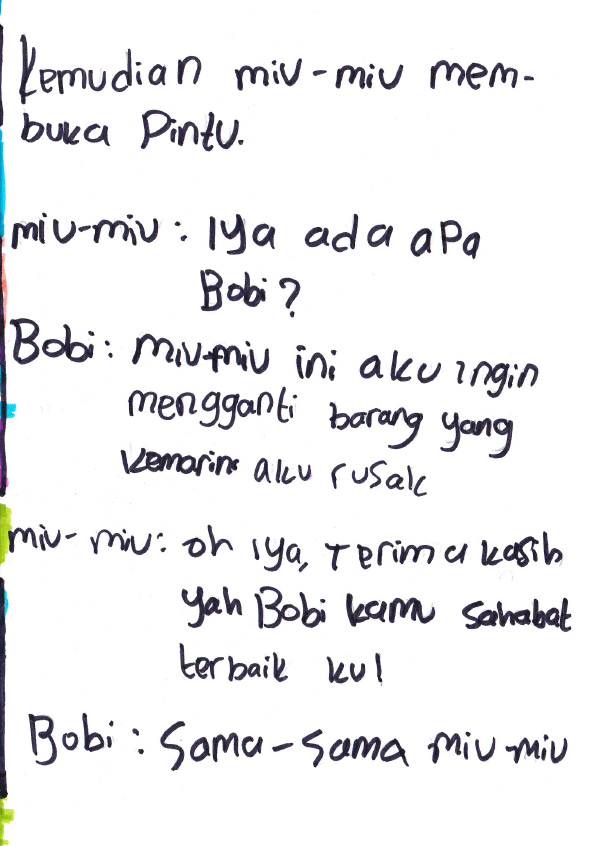 Kemudian miu-miu mem-
buka Pintu.
miu-miu: Iya ada aPa
Bobi?
Bobi: miu-miu ini aku ingin
mengganti barang yang
kemarin aku rusak
miu-miu: oh iya, Terima kasih
yah Bobi kamu sahabat
terbaik ku!
Bobi: Sama-sama miu-miu